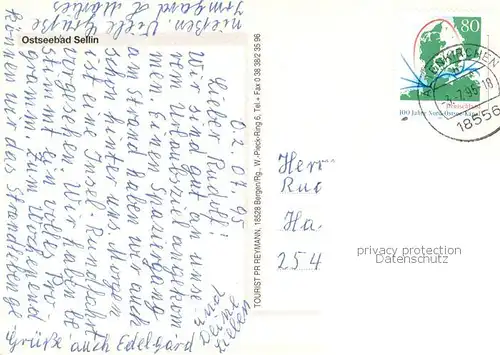 Ostseebad Sellin
6.2.07.95
Lieber Rudolf!
Wir sind gut an unse-
rem Urlaubsziel angekom
men. Einen Spaziergang
am Strand haben wir auch
schon hinter uns. Morgen
ist eine Insel-Rundfahrt
vorgesehen. Wir halt be-
stimmt ein volles Pro
gramm. Zum Wochenend
können wir das Strandleben ge
nießen. Viele Grüße
Irmgard &
und
Deine
Lieben
Grüße, auch Edelgard
TOURIST PR REYMANN, 18528 Bergen/Rg., W.-Pieck-Ring 6, Tel.+ Fax 0 38 38/2 35 96
80
Deutschland
100 Jahre Nord-Ostsee-Kanal
KIRCHEN
18556
Herr
Ha
254
privacy protection
Datenschutz